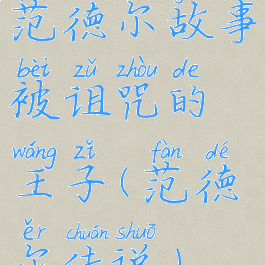 范德尔故事
bèi zǔ zhòu de
被诅咒的
wáng zǐ fàn dé
王子(范德
ěr chuán shuō
尔传说)